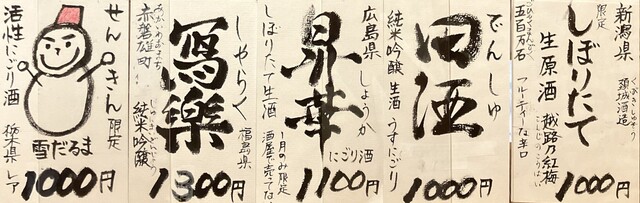 新潟県 頚城酒造
限定 しぼりたて
生原酒 越路乃紅梅
こしじのこうばい
五百万石 フルーティーな辛口
1000円
でんしゅ
田酒
純米吟醸 生酒 うすにごり
1000円
広島県 しょうか
昇華
にごり酒
しぼりたて生酒
1月のみ限定
1100円
しゃらく
寫樂
福島県
赤磐雄町
純米吟醸
1300円
せんきん 限定
雪だるま
活性にごり酒
栃木県 レア
1000円